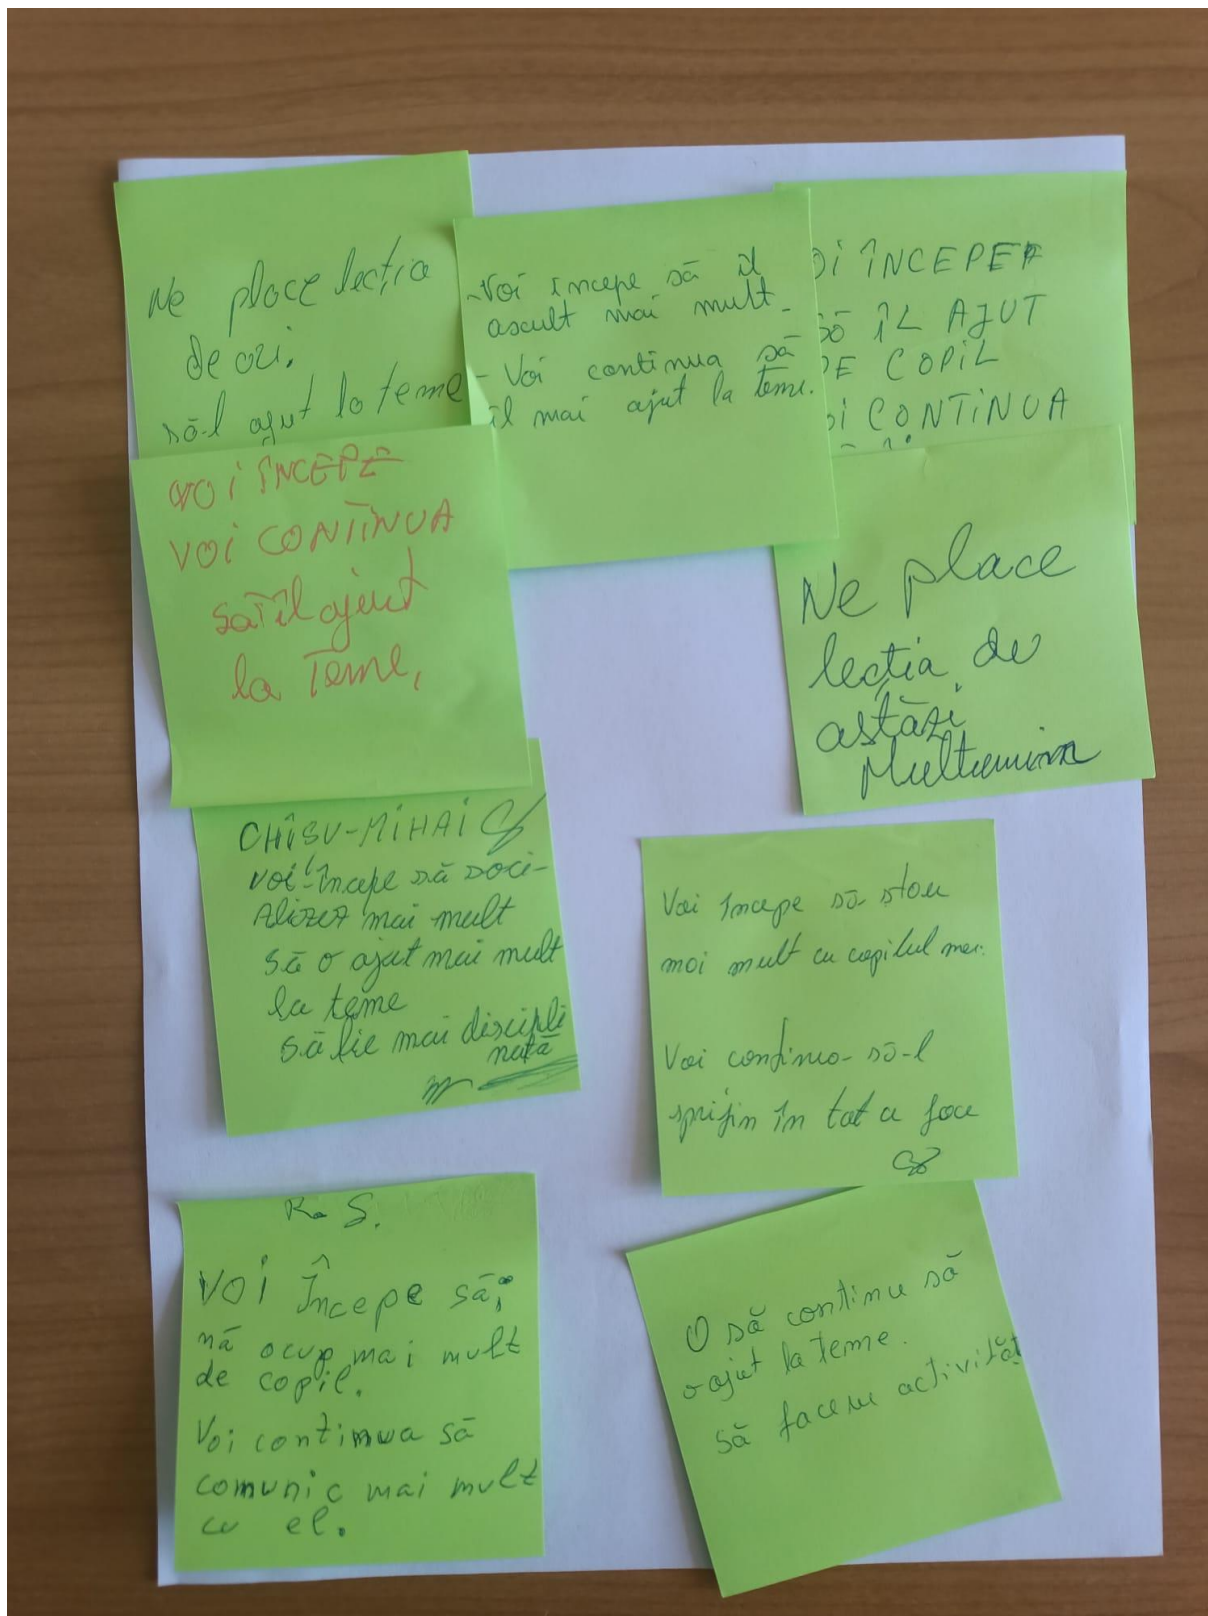 Ne place lecția
de azi.
să-l ajut la teme
-Voi începe să îl
ascult mai mult-
- Voi continua să
îl mai ajut la teme.
OI ÎNCEPE
SĂ ÎL AJUT
PE COPIL
OI CONTINUA
VOI ÎNCEPE
VOI CONTINUA
să îl ajut
la Teme,
Ne place
lecția de
astăzi
Multumim
CHÎSU-MIHAI
voi începe să soci-
alizez mai mult
să o ajut mai mult
la teme
să fie mai discipli
nată
Voi începe să stau
mai mult cu copilul meu.
Voi continua să-l
sprijin în tot ce face
R. S.
VOI Începe să;
mă ocup mai mult
de copil.
Voi continua să
comunic mai mult
cu el.
O să continu să
o ajut la teme.
să facem activităț